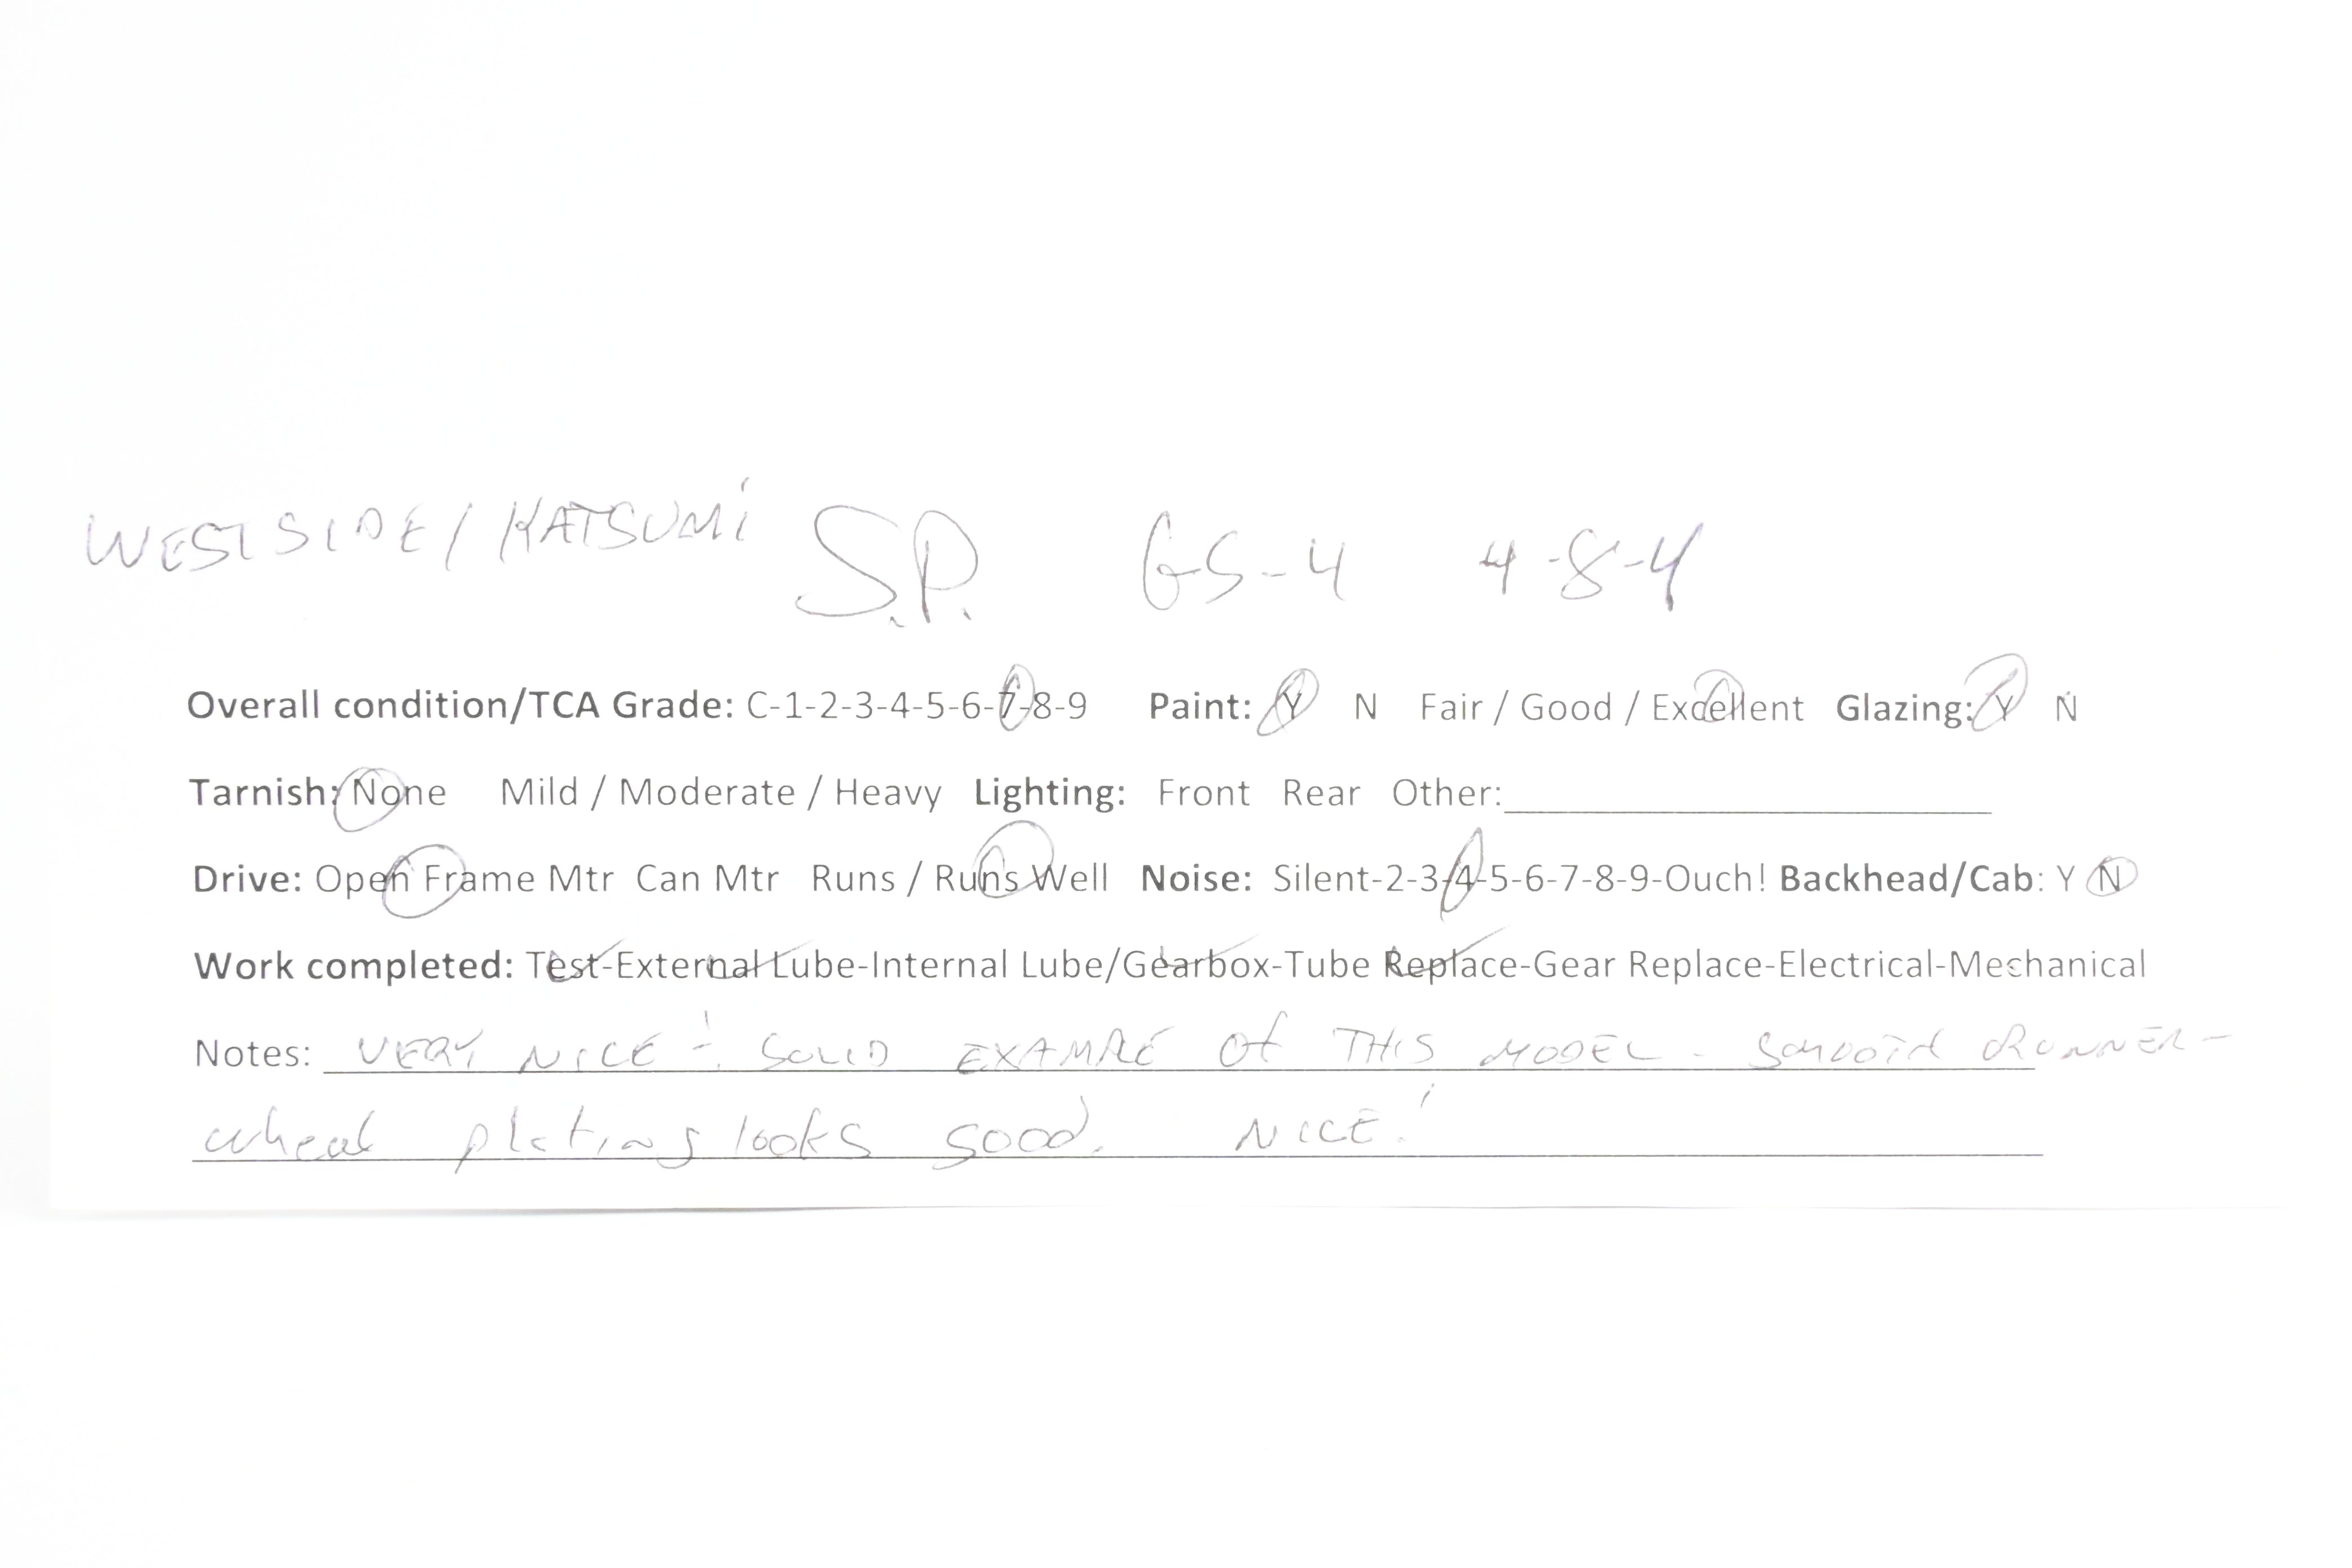 WESTSIDE/KATSUMi S.P. GS-4 4-8-4
Overall condition/TCA Grade: C-1-2-3-4-5-6-7-8-9 Paint: Y N Fair / Good / Excellent Glazing: Y N
Tarnish: None Mild / Moderate / Heavy Lighting: Front Rear Other:
Drive: Open Frame Mtr Can Mtr Runs / Runs Well Noise: Silent-2-3-4-5-6-7-8-9-Ouch! Backhead/Cab: Y N
Work completed: Test-External Lube-Internal Lube/Gearbox-Tube Replace-Gear Replace-Electrical-Mechanical
Notes: VERY NICE! SOLID EXAMPLE Of THIS MODEL. SMOOTH RUNNER-
wheel plating looks good. NICE!